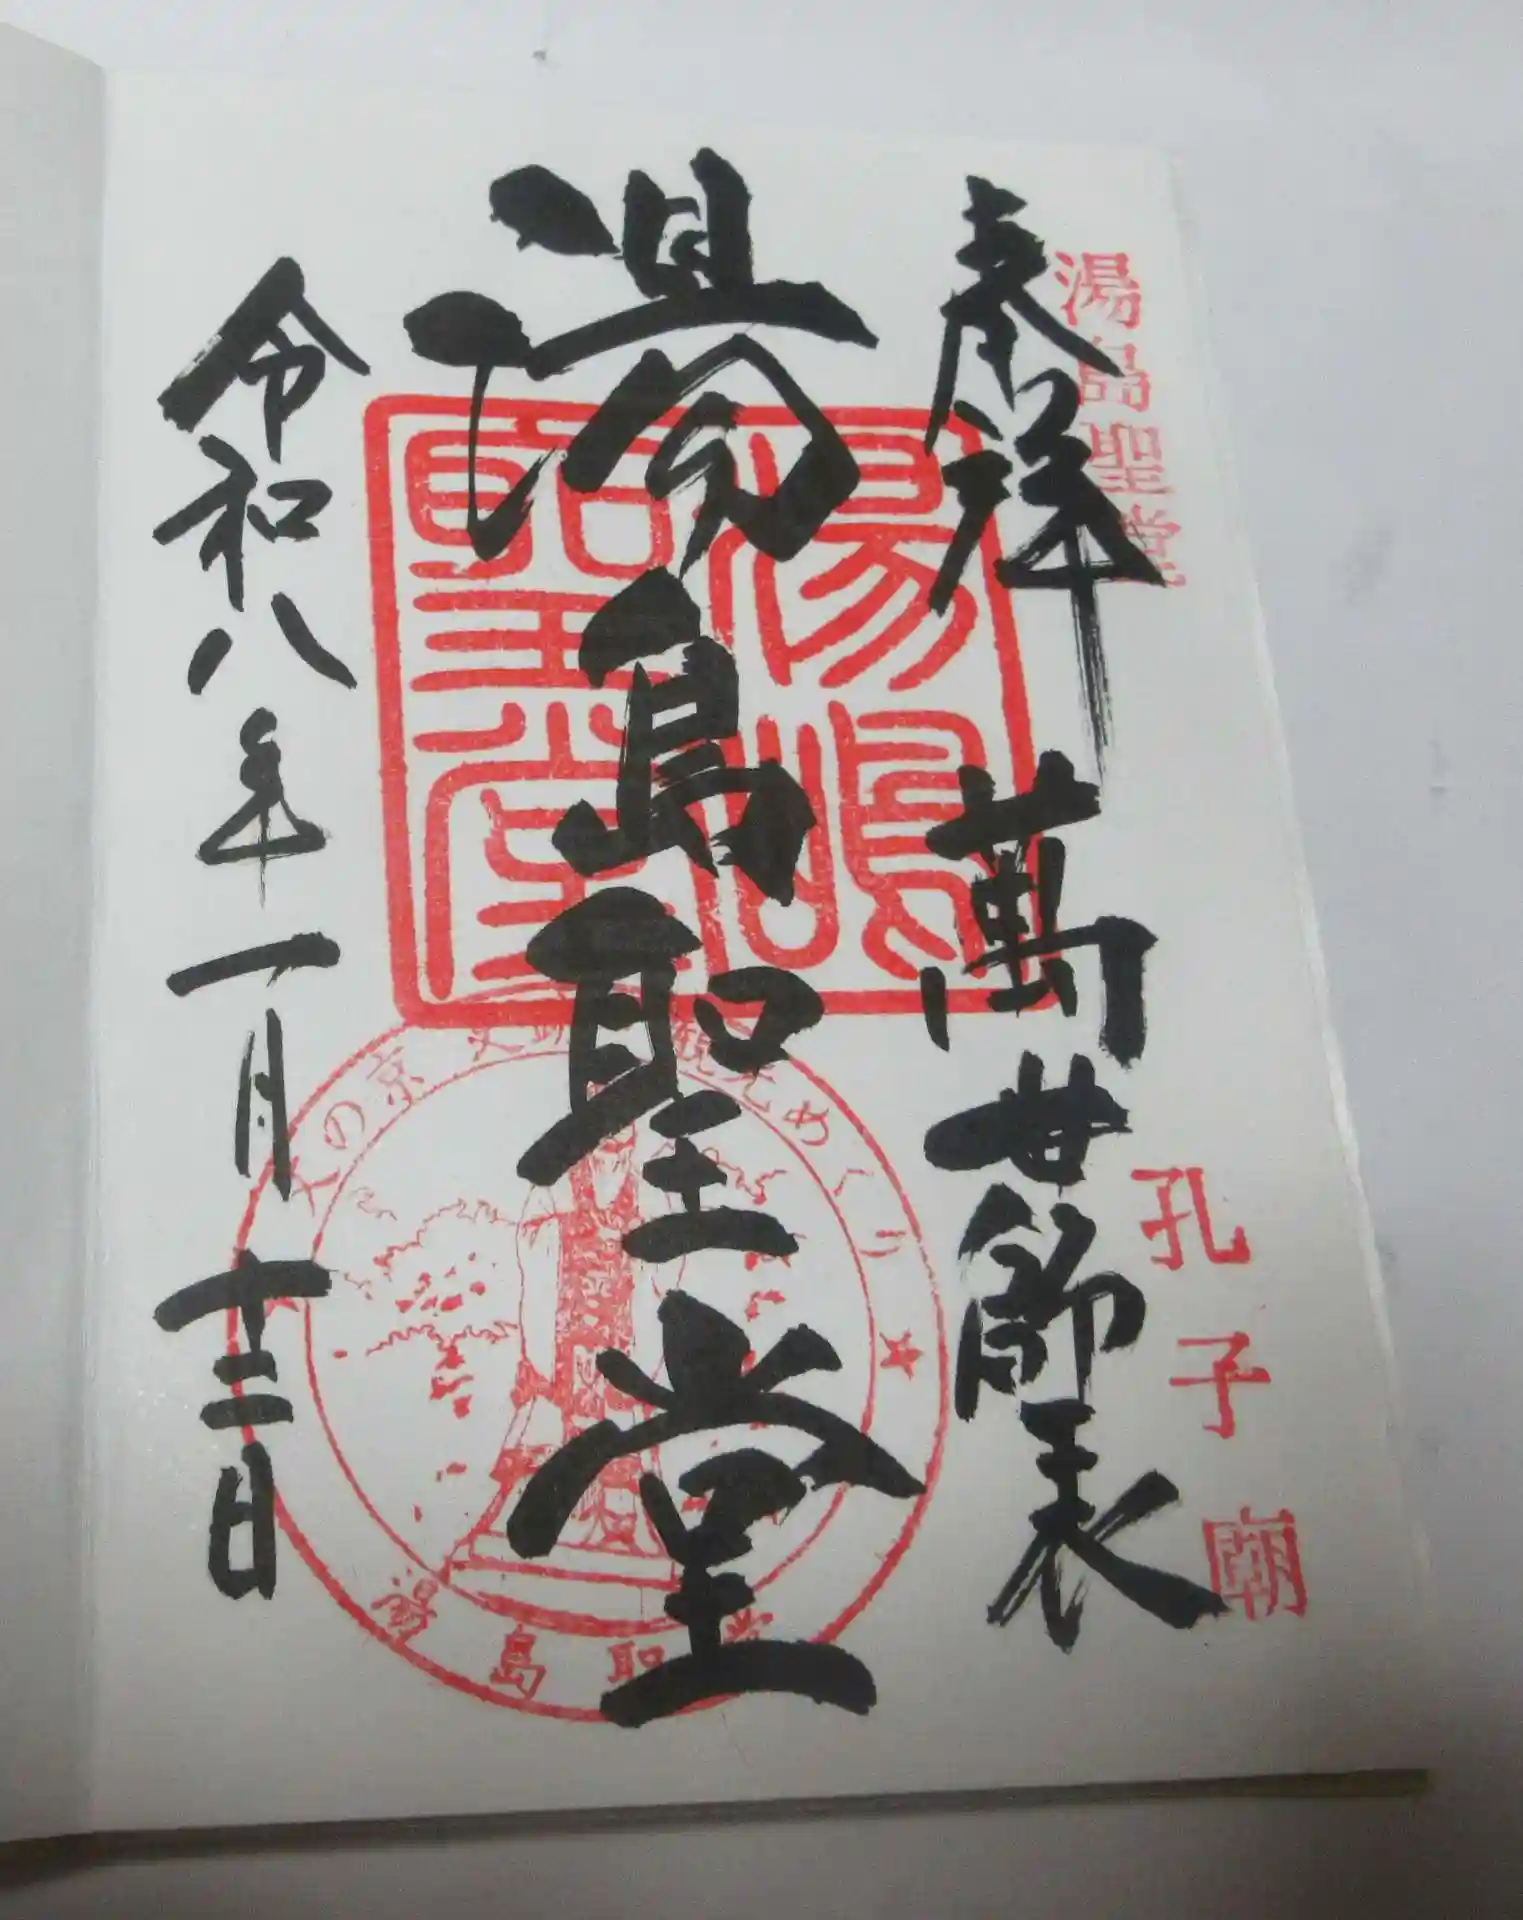 湯島聖堂
孔子廟
奉拝 萬世師表
湯島聖堂
湯島聖堂
令和八年一月十二日
の京 史跡 観光めぐり
湯島聖堂